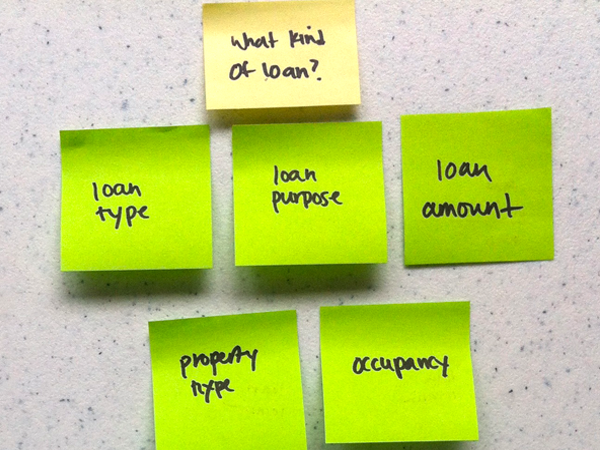 What kind
of loan?
loan
type
loan
purpose
loan
amount
property
type
occupancy